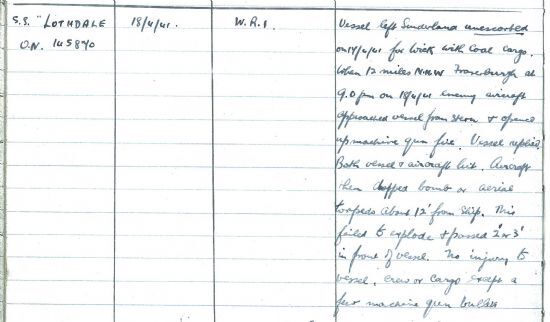 S.S. "LOTHDALE 18/4/41. W.R.I. Vessel left Sunderland unescorted
O.N. 145870 on 17/4/41 for Wick with Coal cargo.
When 12 miles N.N.W Fraserburgh at
9.0 pm on 18/4/41 enemy aircraft
approached vessel from stern & opened
up machine gun fire. Vessel replied.
Both vessel & aircraft hit. Aircraft
then dropped bomb or aerial
torpedo about 12' from ship. This
failed to explode & passed 2' or 3'
in front of vessel. No injury to
vessel, crew or cargo except a
few machine gun bullets